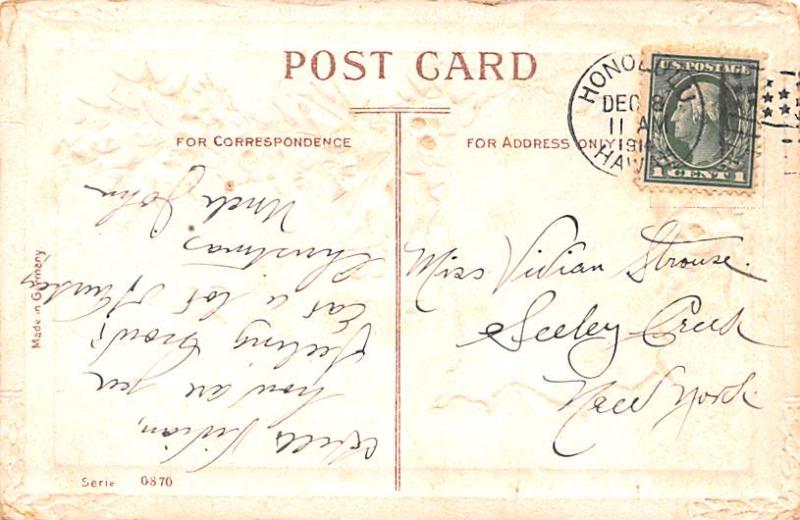 POST CARD
FOR CORRESPONDENCE
FOR ADDRESS ONLY
HONOLULU
DEC 8
11 A
1914
HAWAII
U.S. POSTAGE
1 CENT 1
Hello Vivian,
how are you
feeling now?
Eat a lot
Christmas
Uncle John
Miss Vivian Strouse.
Seeley Creek
New York
Made in Germany
Serie 0870